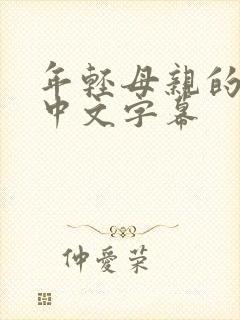 年轻母親的
中文字幕
仲愛荣